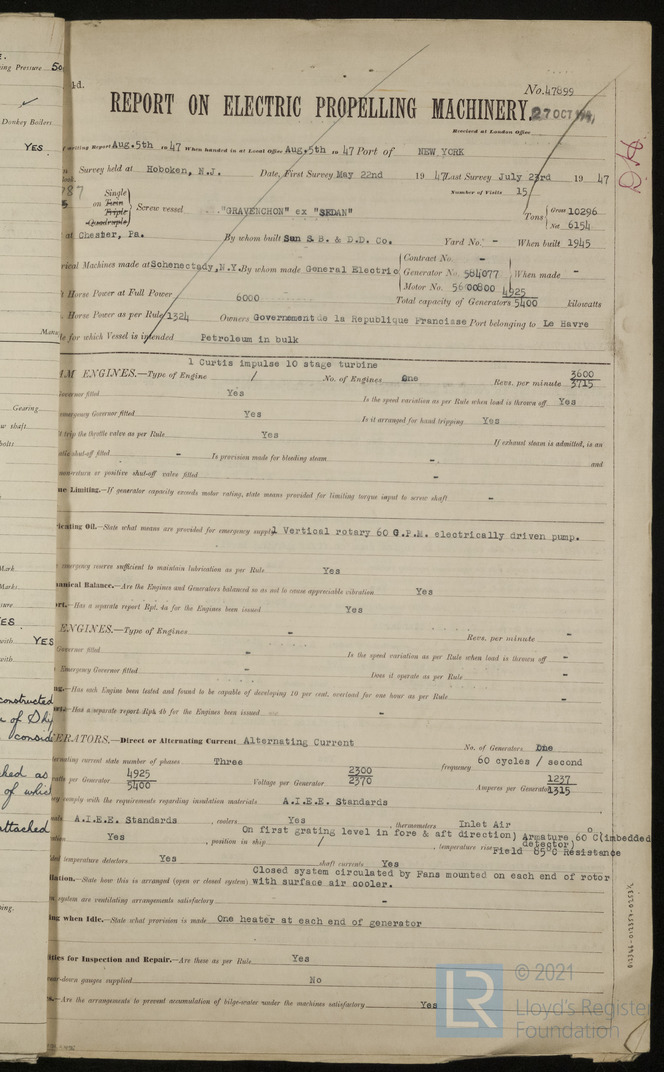 No. 47899
REPORT ON ELECTRIC PROPELLING MACHINERY.
27 OCT
Received at London Office
writing Report Aug.5th 19 47 When handed in at Local Office Aug.5th 19 47 Port of NEW YORK
Survey held at Hoboken, N.J. Date, First Survey May 22nd 19 47 Last Survey July 23rd 19 47
Number of Visits 15
on Single Twin Triple Quadruple Screw vessel "GRAVENCHON" ex "SEDAN" Tons Gross 10296 Net 6154
at Chester, Pa. By whom built Sun S.B. & D.D. Co. Yard No. - When built 1945
rical Machines made at Schenectady, N.Y. By whom made General Electric Contract No. - Generator No. 584077 Motor No. 5600800 When made -
Horse Power at Full Power 6000 Total capacity of Generators 4925 5400 kilowatts
Horse Power as per Rule 1324 Owners Government de la Republique Francaise Port belonging to Le Havre
for which Vessel is intended Petroleum in bulk
1 Curtis impulse 10 stage turbine
ENGINES.—Type of Engine / No. of Engines One Revs. per minute 3600 3715
Governor fitted Yes Is the speed variation as per Rule when load is thrown off Yes
Emergency Governor fitted Yes Is it arranged for hand tripping Yes
trip the throttle valve as per Rule Yes If exhaust steam is admitted, is an
shut-off fitted - Is provision made for bleeding steam - and
or positive shut-off valve fitted -
Limiting.—If generator capacity exceeds motor rating, state means provided for limiting torque input to screw shaft -
icating Oil.—State what means are provided for emergency supply 1 Vertical rotary 60 G.P.M. electrically driven pump.
emergency reserve sufficient to maintain lubrication as per Rule Yes
anical Balance.—Are the Engines and Generators balanced so as not to cause appreciable vibration Yes
rt.—Has a separate report Rpt. 4a for the Engines been issued Yes
ENGINES.—Type of Engines - Revs. per minute -
Governor fitted - Is the speed variation as per Rule when load is thrown off -
Emergency Governor fitted - Does it operate as per Rule -
ng.—Has each Engine been tested and found to be capable of developing 10 per cent. overload for one hour as per Rule -
rt.—Has a separate report Rpt. 4b for the Engines been issued -
ERATORS.—Direct or Alternating Current Alternating Current No. of Generators One
alternating current state number of phases Three frequency 60 cycles / second
watts per Generator 4925 5400 Voltage per Generator 2300 2370 Amperes per Generator 1237 1315
comply with the requirements regarding insulation materials A.I.E.E. Standards
A.I.E.E. Standards , coolers Yes , thermometers Inlet Air
Yes , position in ship On first grating level in fore & aft direction) / , temperature rise Armature 60°C(imbedded detector)
Field 85°C Résistence
temperature detectors Yes shaft currents Yes
lation.—State how this is arranged (open or closed system) Closed system circulated by Fans mounted on each end of rotor
with surface air cooler.
system are ventilating arrangements satisfactory -
ng when Idle.—State what provision is made One heater at each end of generator
ities for Inspection and Repair.—Are these as per Rule Yes
wear-down gauges supplied No
Are the arrangements to prevent accumulation of bilge-water under the machines satisfactory Yes
LR
© 2021
Lloyd's Register
Foundation
ing Pressure
Donkey Boilers
YES
Gearing.
shaft.
bolts
Mark.
Marks.
with YES
constructed
of Ship
consid
ched as
of which
attached